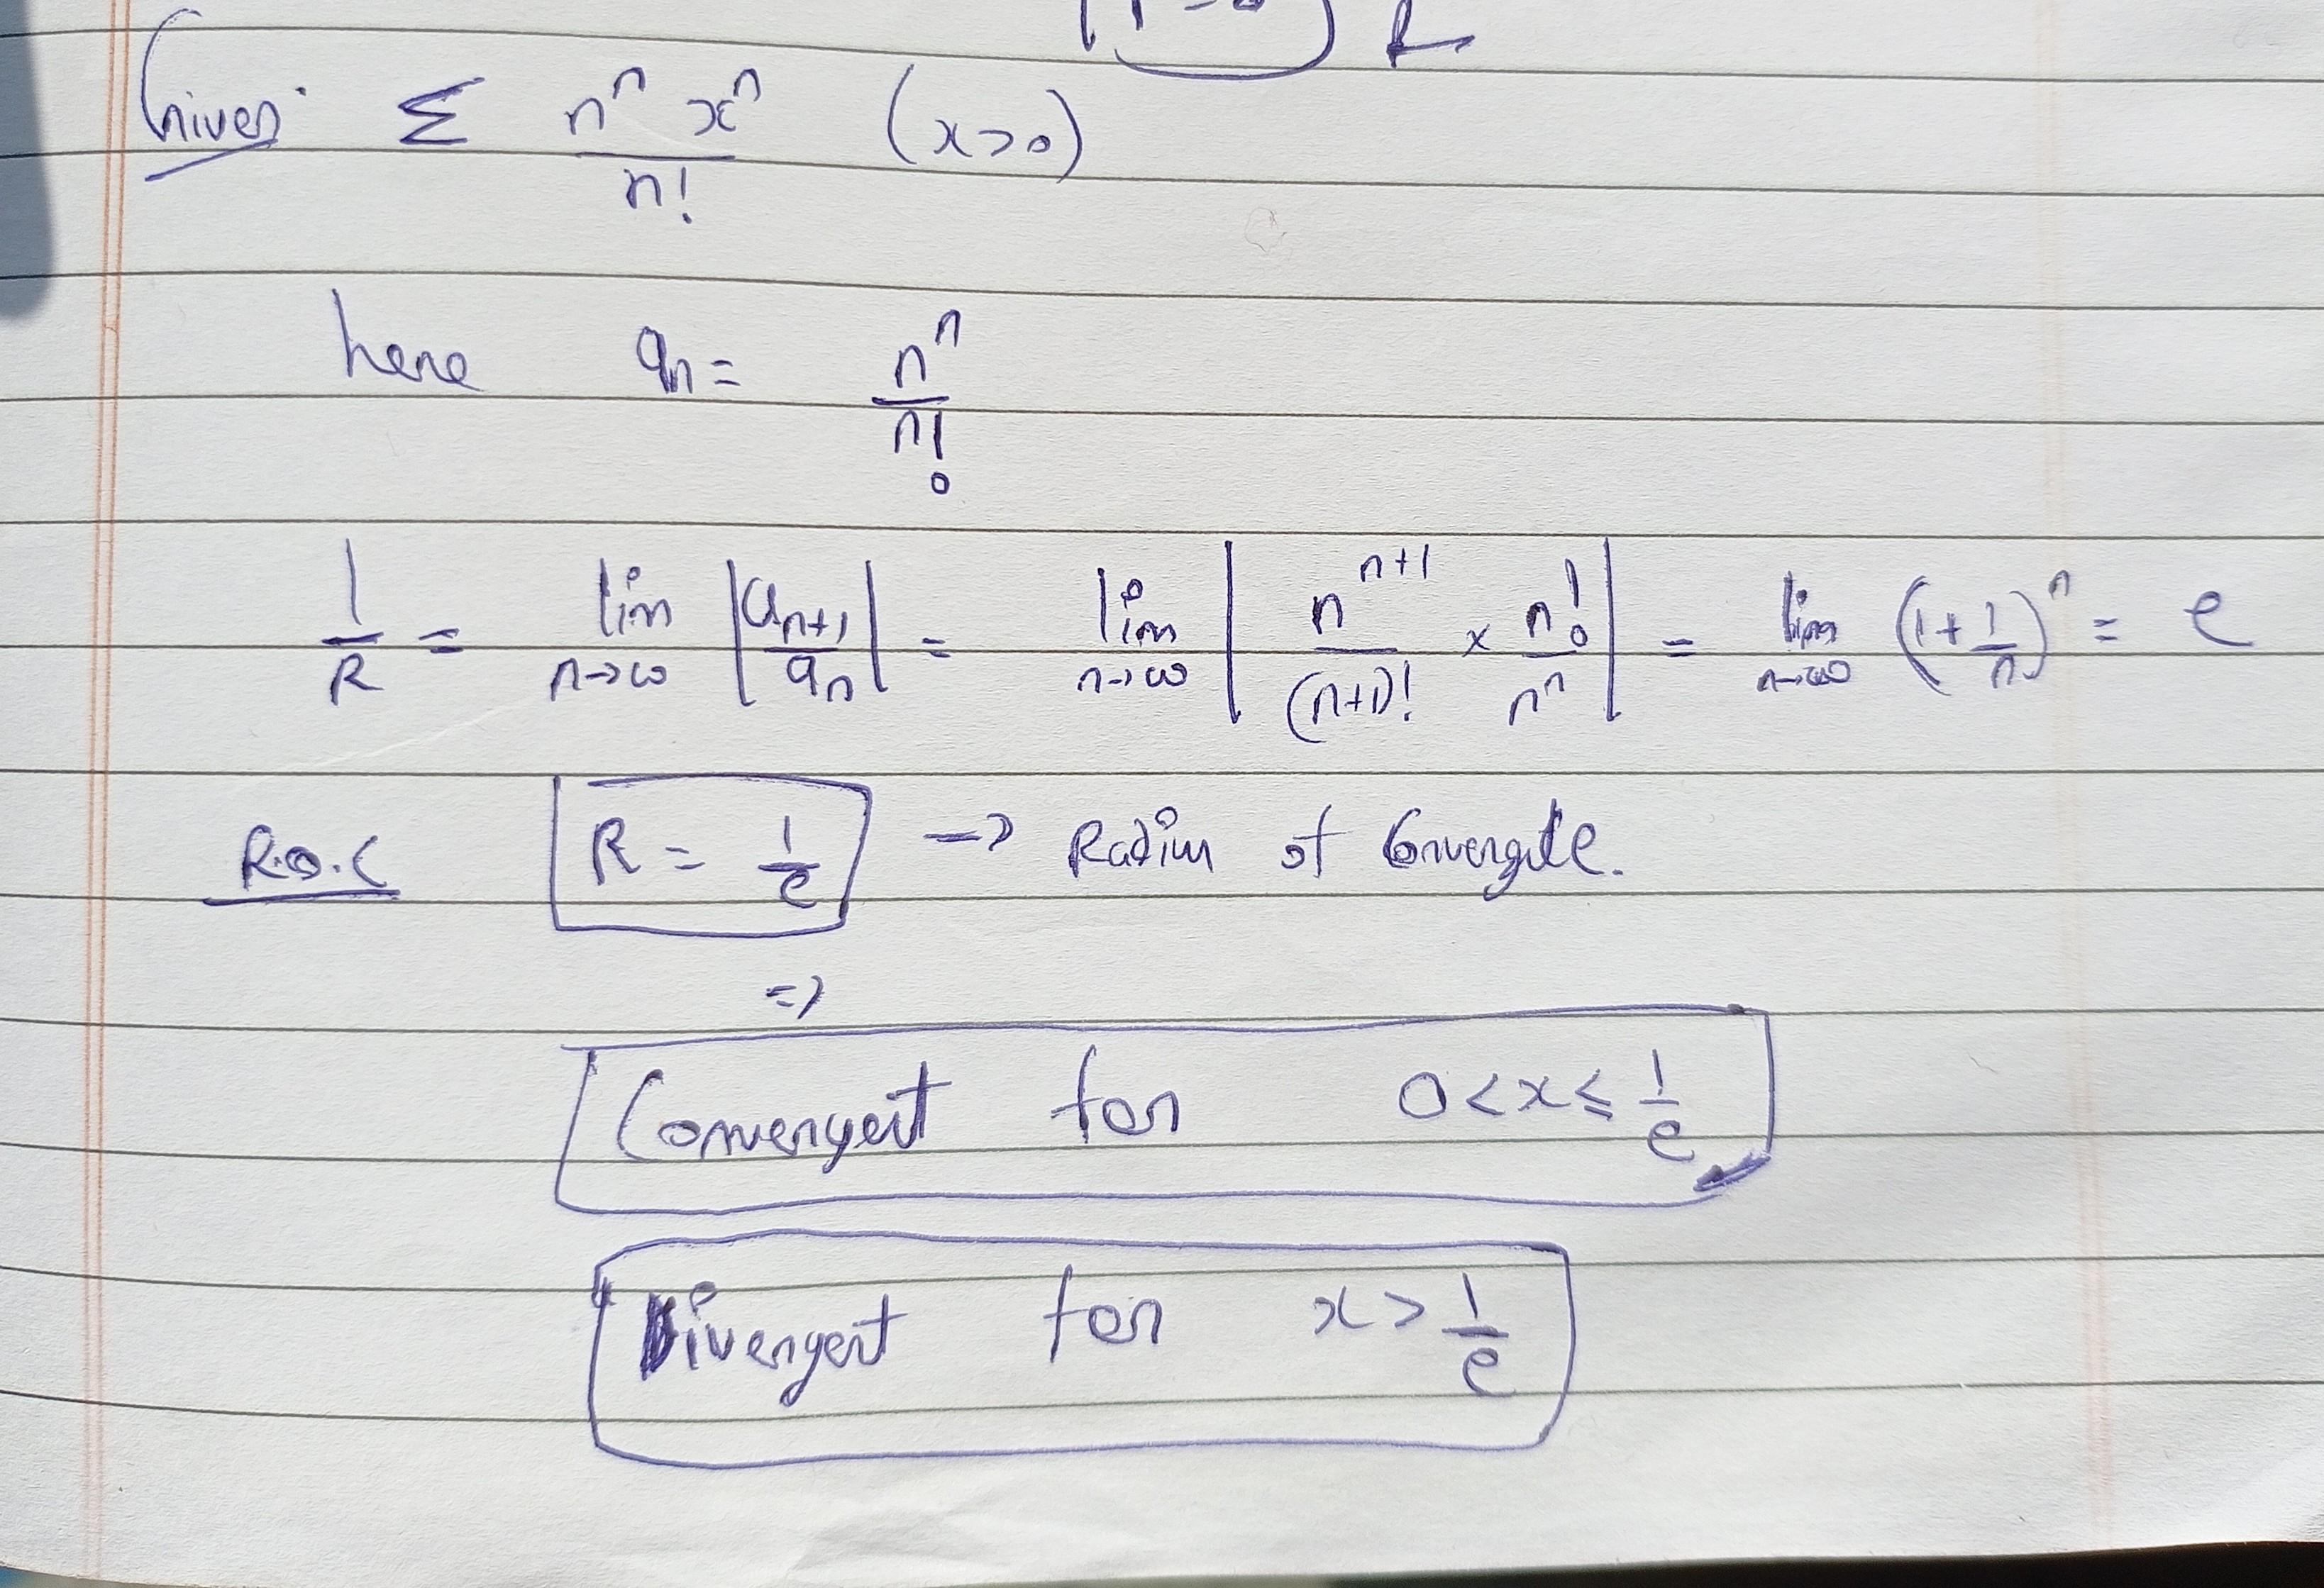 Given: Σ n^n x^n / n! (x>0)
here a_n = n^n / n!
1/R = lim n→∞ |a_{n+1} / a_n| = lim n→∞ | n^{n+1} / (n+1)! × n! / n^n | = lim n→∞ (1 + 1/n)^n = e
R.O.C R = 1/e → Radius of Convergence.
⇒
Convergent for 0 < x ≤ 1/e
Divergent for x > 1/e